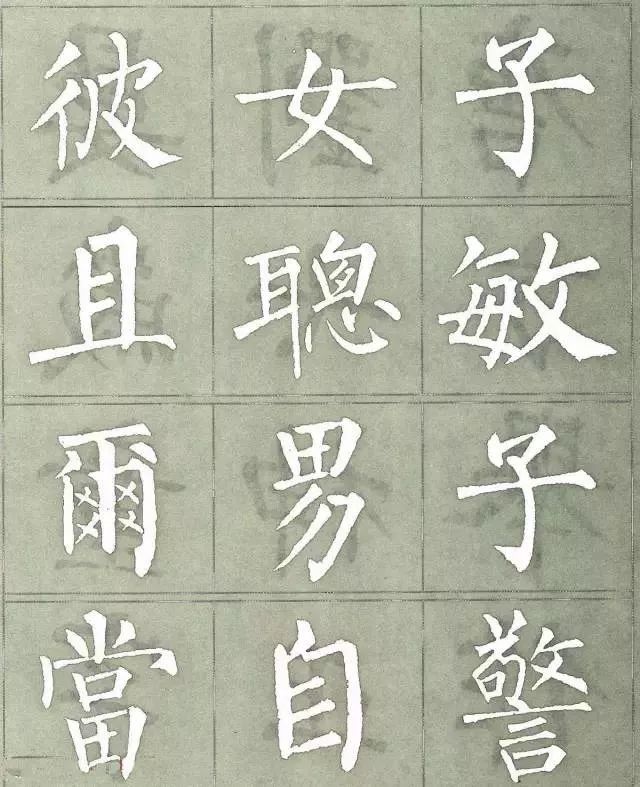 彼女子
且聰敏
爾男子
當自警